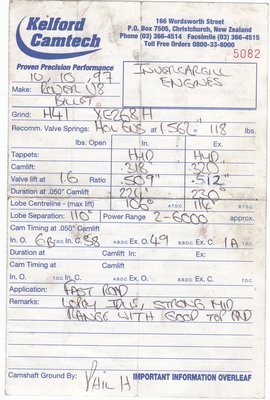 Kelford Camtech
166 Wordsworth Street
P.O. Box 7505, Christchurch, New Zealand
Phone (03) 366-4514 Facsimile (03) 366-4515
Toll Free Orders 0800-33-6000
5082
Proven Precision Performance
10.10.97
INVERCARGILL
ENGINES
Make: ROVER V8
BILLET
Grind: H41 XE268H
Recomm. Valve Springs: 1.562" = 118 lbs.
lbs. Open In. Ex.
Tappets: HYD HYD
Camlift: .318" .320"
Valve lift at 1.6 Ratio .509" .512"
Duration at .050" Camlift 224°
Lobe Centreline - (max lift) 106° 114°
Lobe Separation: 110° Power Range 2-6000 approx.
Cam Timing at .050" Camlift
In. O. 6 B T.D.C. In. C. 38 A.B.D.C. Ex.O. 49 B.B.D.C. Ex. C. 1A T.D.C.
Duration at Camlift In: Ex:
Cam Timing at Camlift
In. O. T.D.C. In C. A.B.D.C. Ex. O. B.B.D.C. Ex. C. T.D.C.
Application: FAST ROAD
Remarks: LOPEY IDLE, STRONG MID
RANGE WITH GOOD TOP END
Camshaft Ground By: PHIL H IMPORTANT INFORMATION OVERLEAF